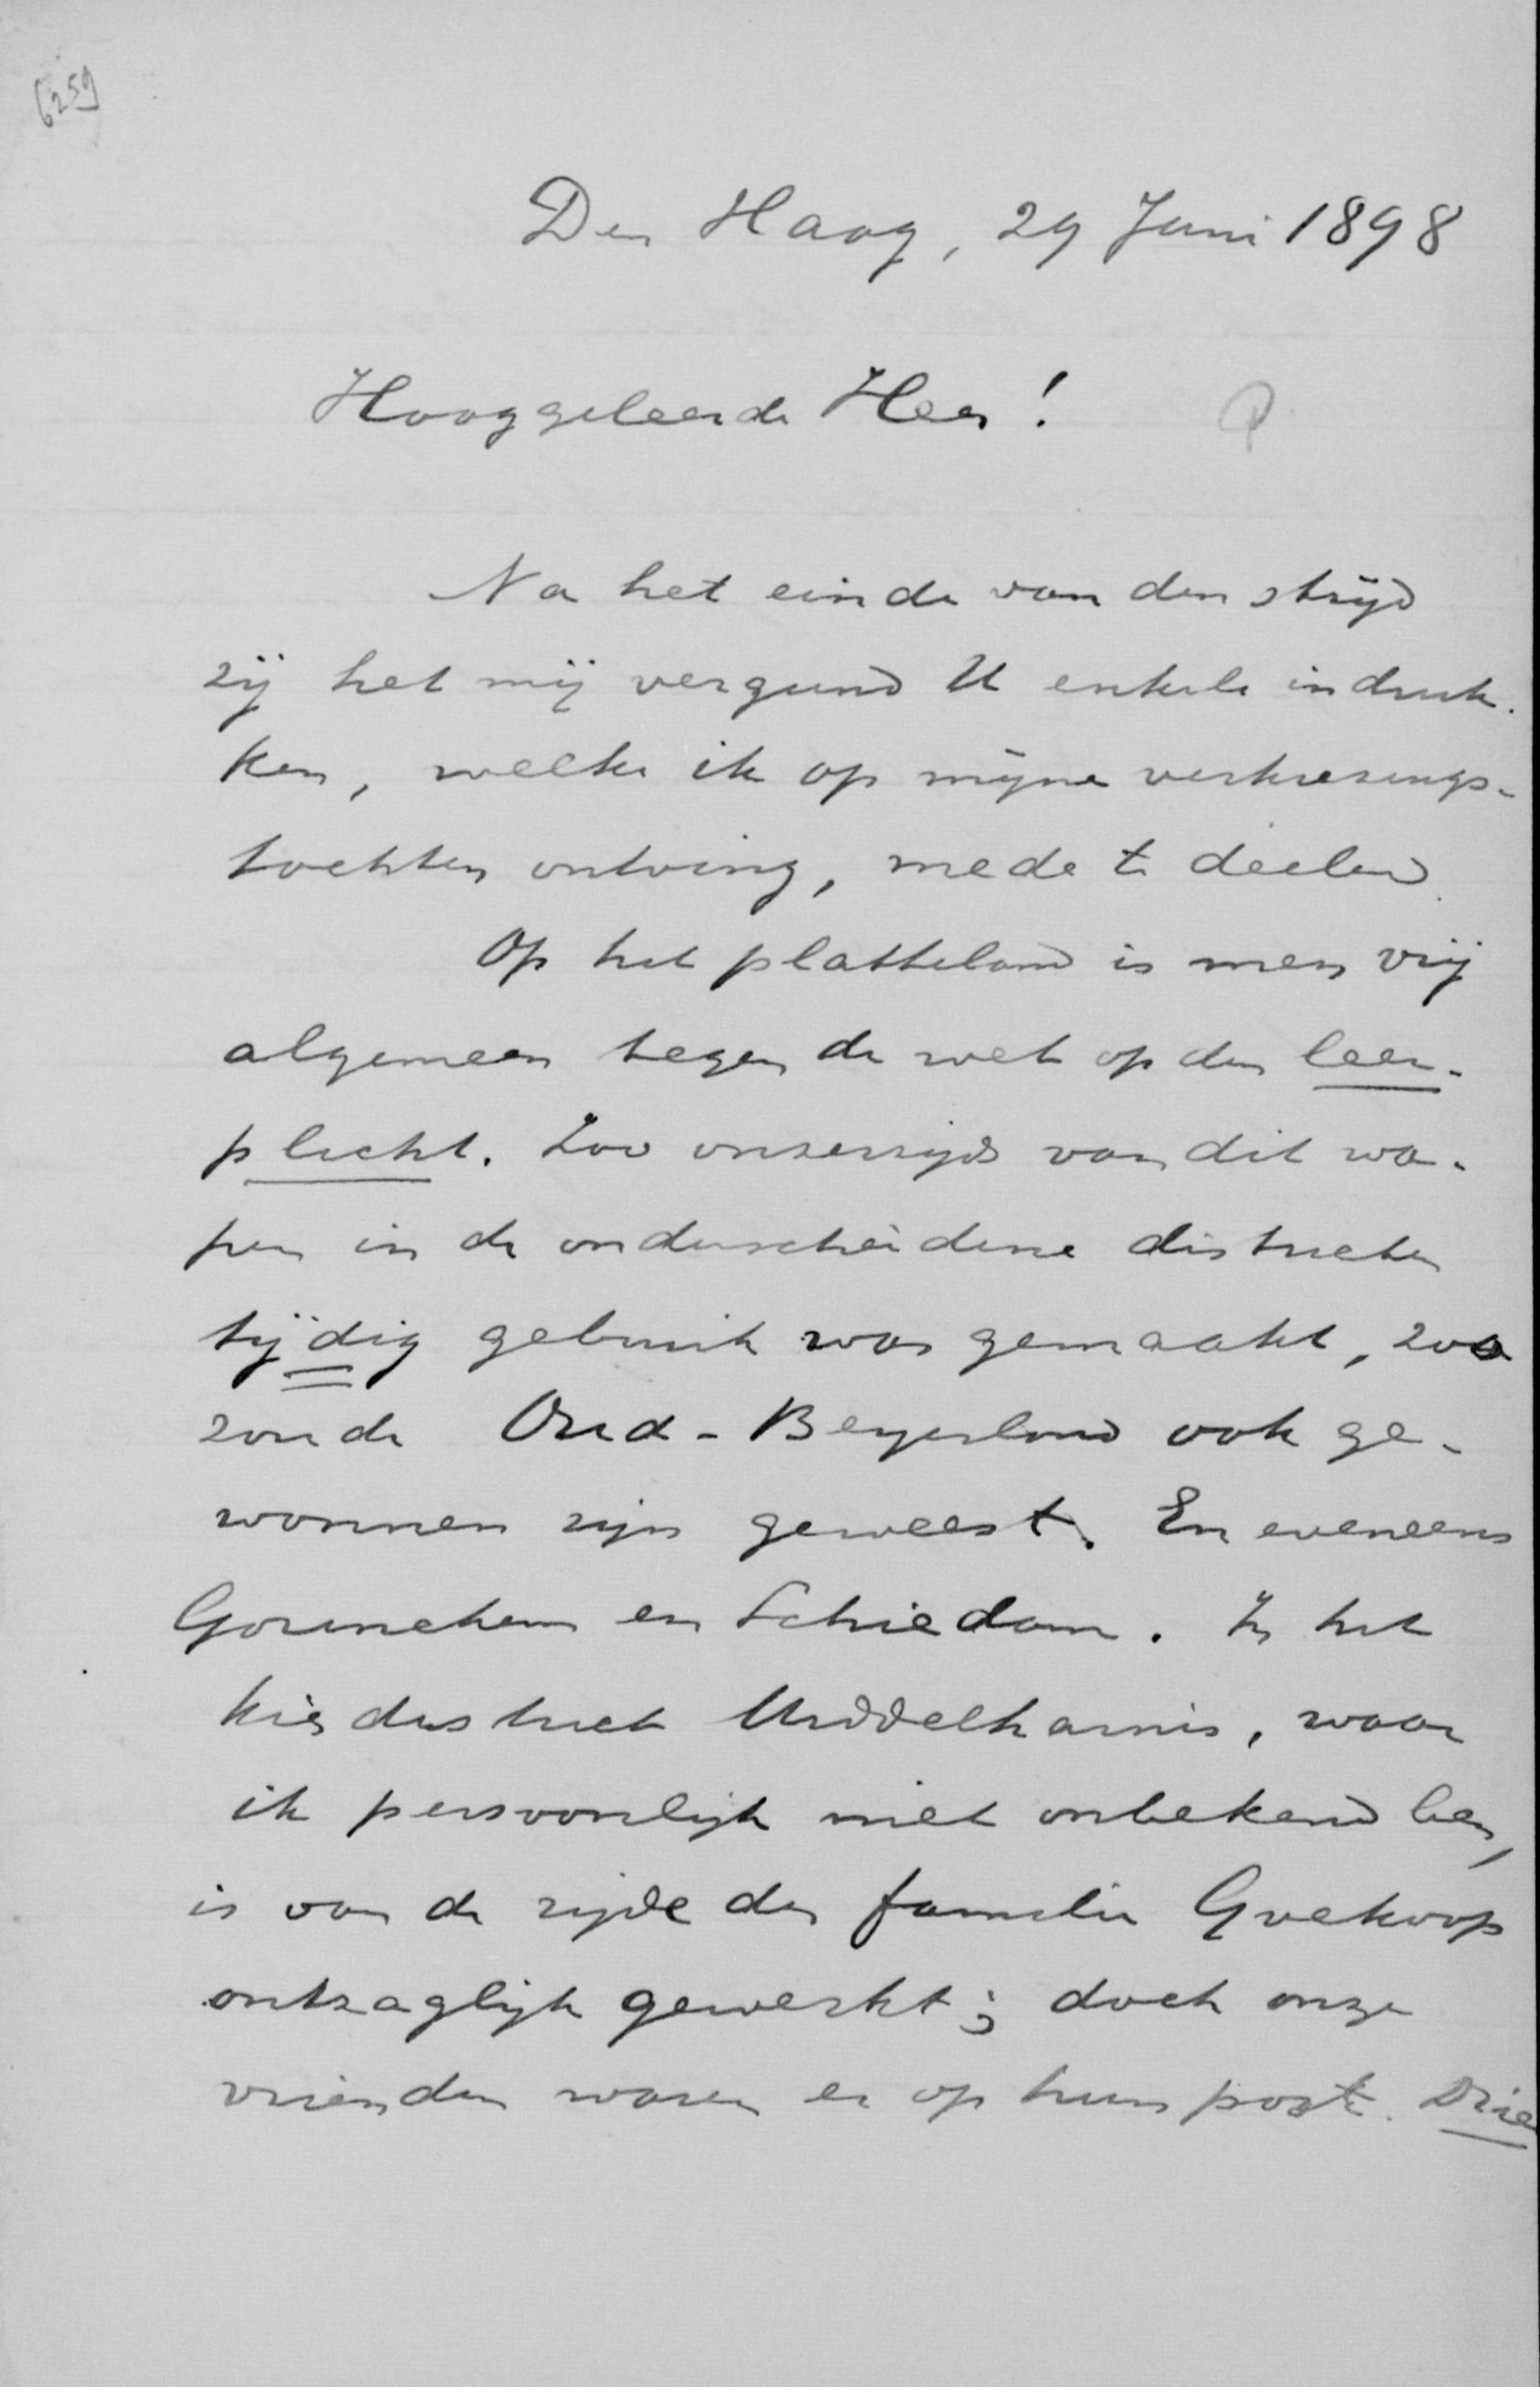 6259
Den Haag, 29 Juni 1898
Hooggeleerde Heer!
Na het einde van den strijd
zij het mij vergund U enkele indruk-
ken, welke ik op mijne verkiezings-
tochten ontving, mede te deelen.
Op het platteland is men vrij
algemeen tegen de wet op den leer-
plicht. Zoo onzerzijds van dit wa-
pen in de onderscheidene districten
tijdig gebruik was gemaakt, zoo
zoude Oud-Beyerland ook ge-
wonnen zijn geweest. En eveneens
Gorinchem en Schiedam. In het
kiesdistrict Middelharnis, waar
ik persoonlijk niet onbekend ben,
is van de zijde der familie Goekoop
ontzaglijk gewerkt; doch onze
vrienden waren er op hun post. Drie